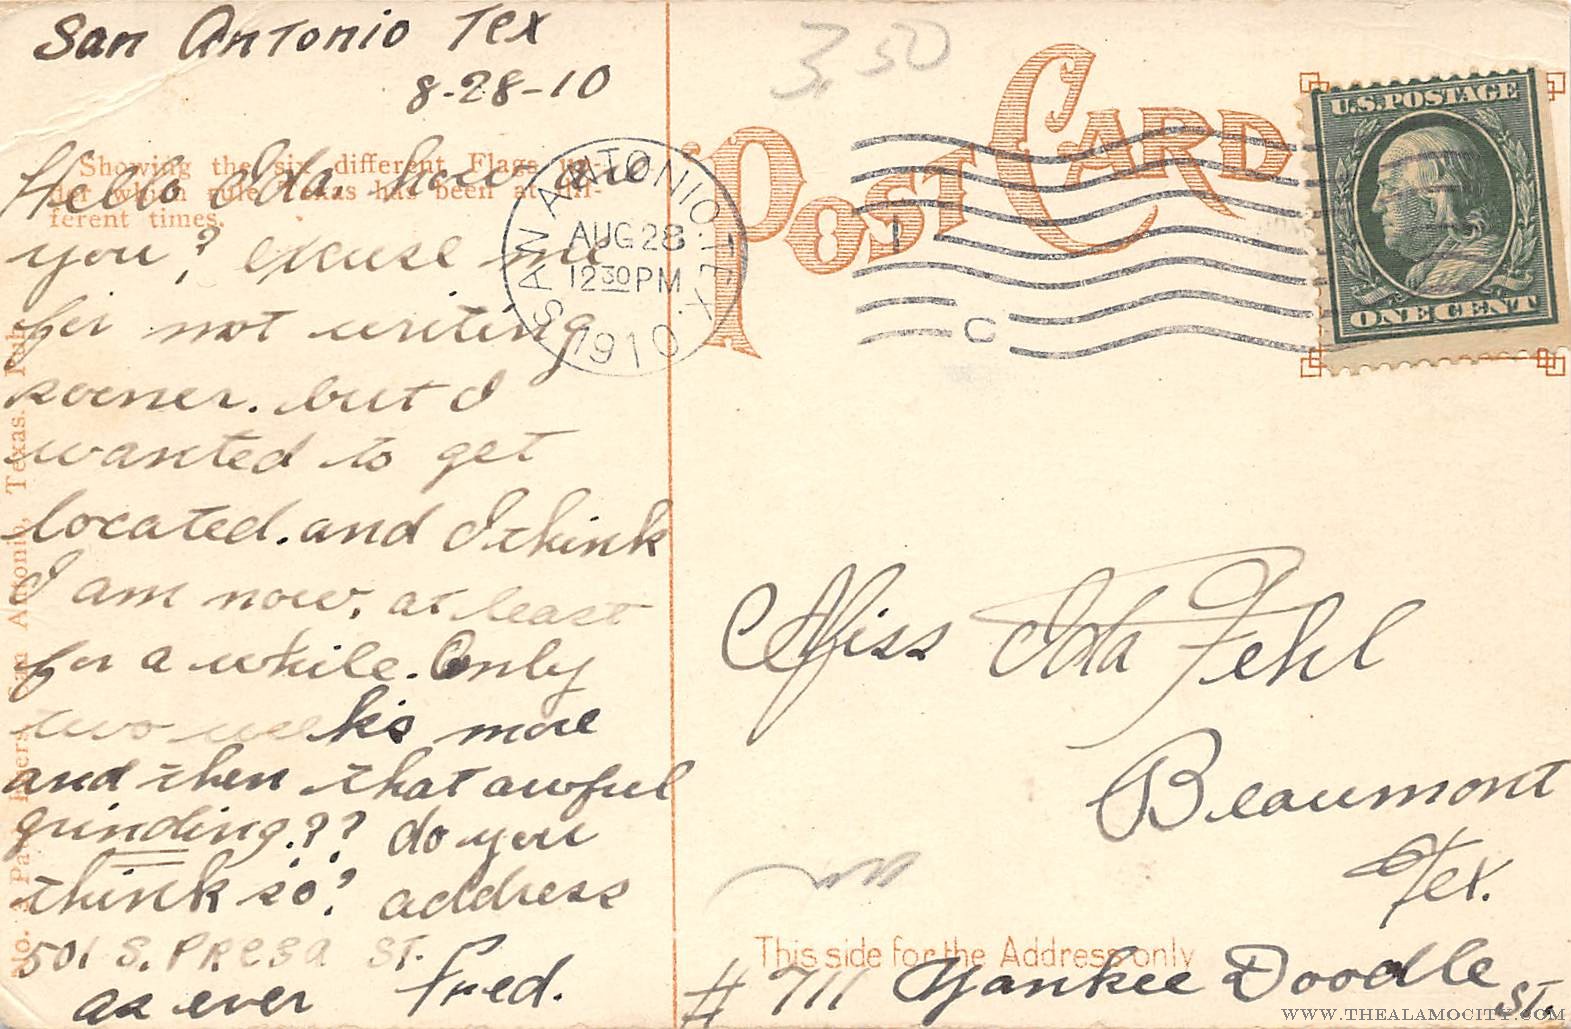 San Antonio Tex
8-28-10
Hello Ida, how are
you? excuse me
for not writing
sooner. but I
wanted to get
located. and I think
I am now, at least
for a while. Only
two weeks more
and then that awful
grinding.?? do you
think so? address
501 S. PRESA ST.
as ever Fred.
Showing the six different Flags un-
der which rule Texas has been at dif-
ferent times.
San Antonio, Texas. Pub.
3.50
POST CARD
SAN ANTONIO, TEX.
AUG 28
12 30 PM
1910
1
C
U.S. POSTAGE
ONE CENT
Miss Ida Fehl
Beaumont
Tex.
This side for the Address only
# 711 Yankee Doodle St.
WWW.THEALAMOCITY.COM